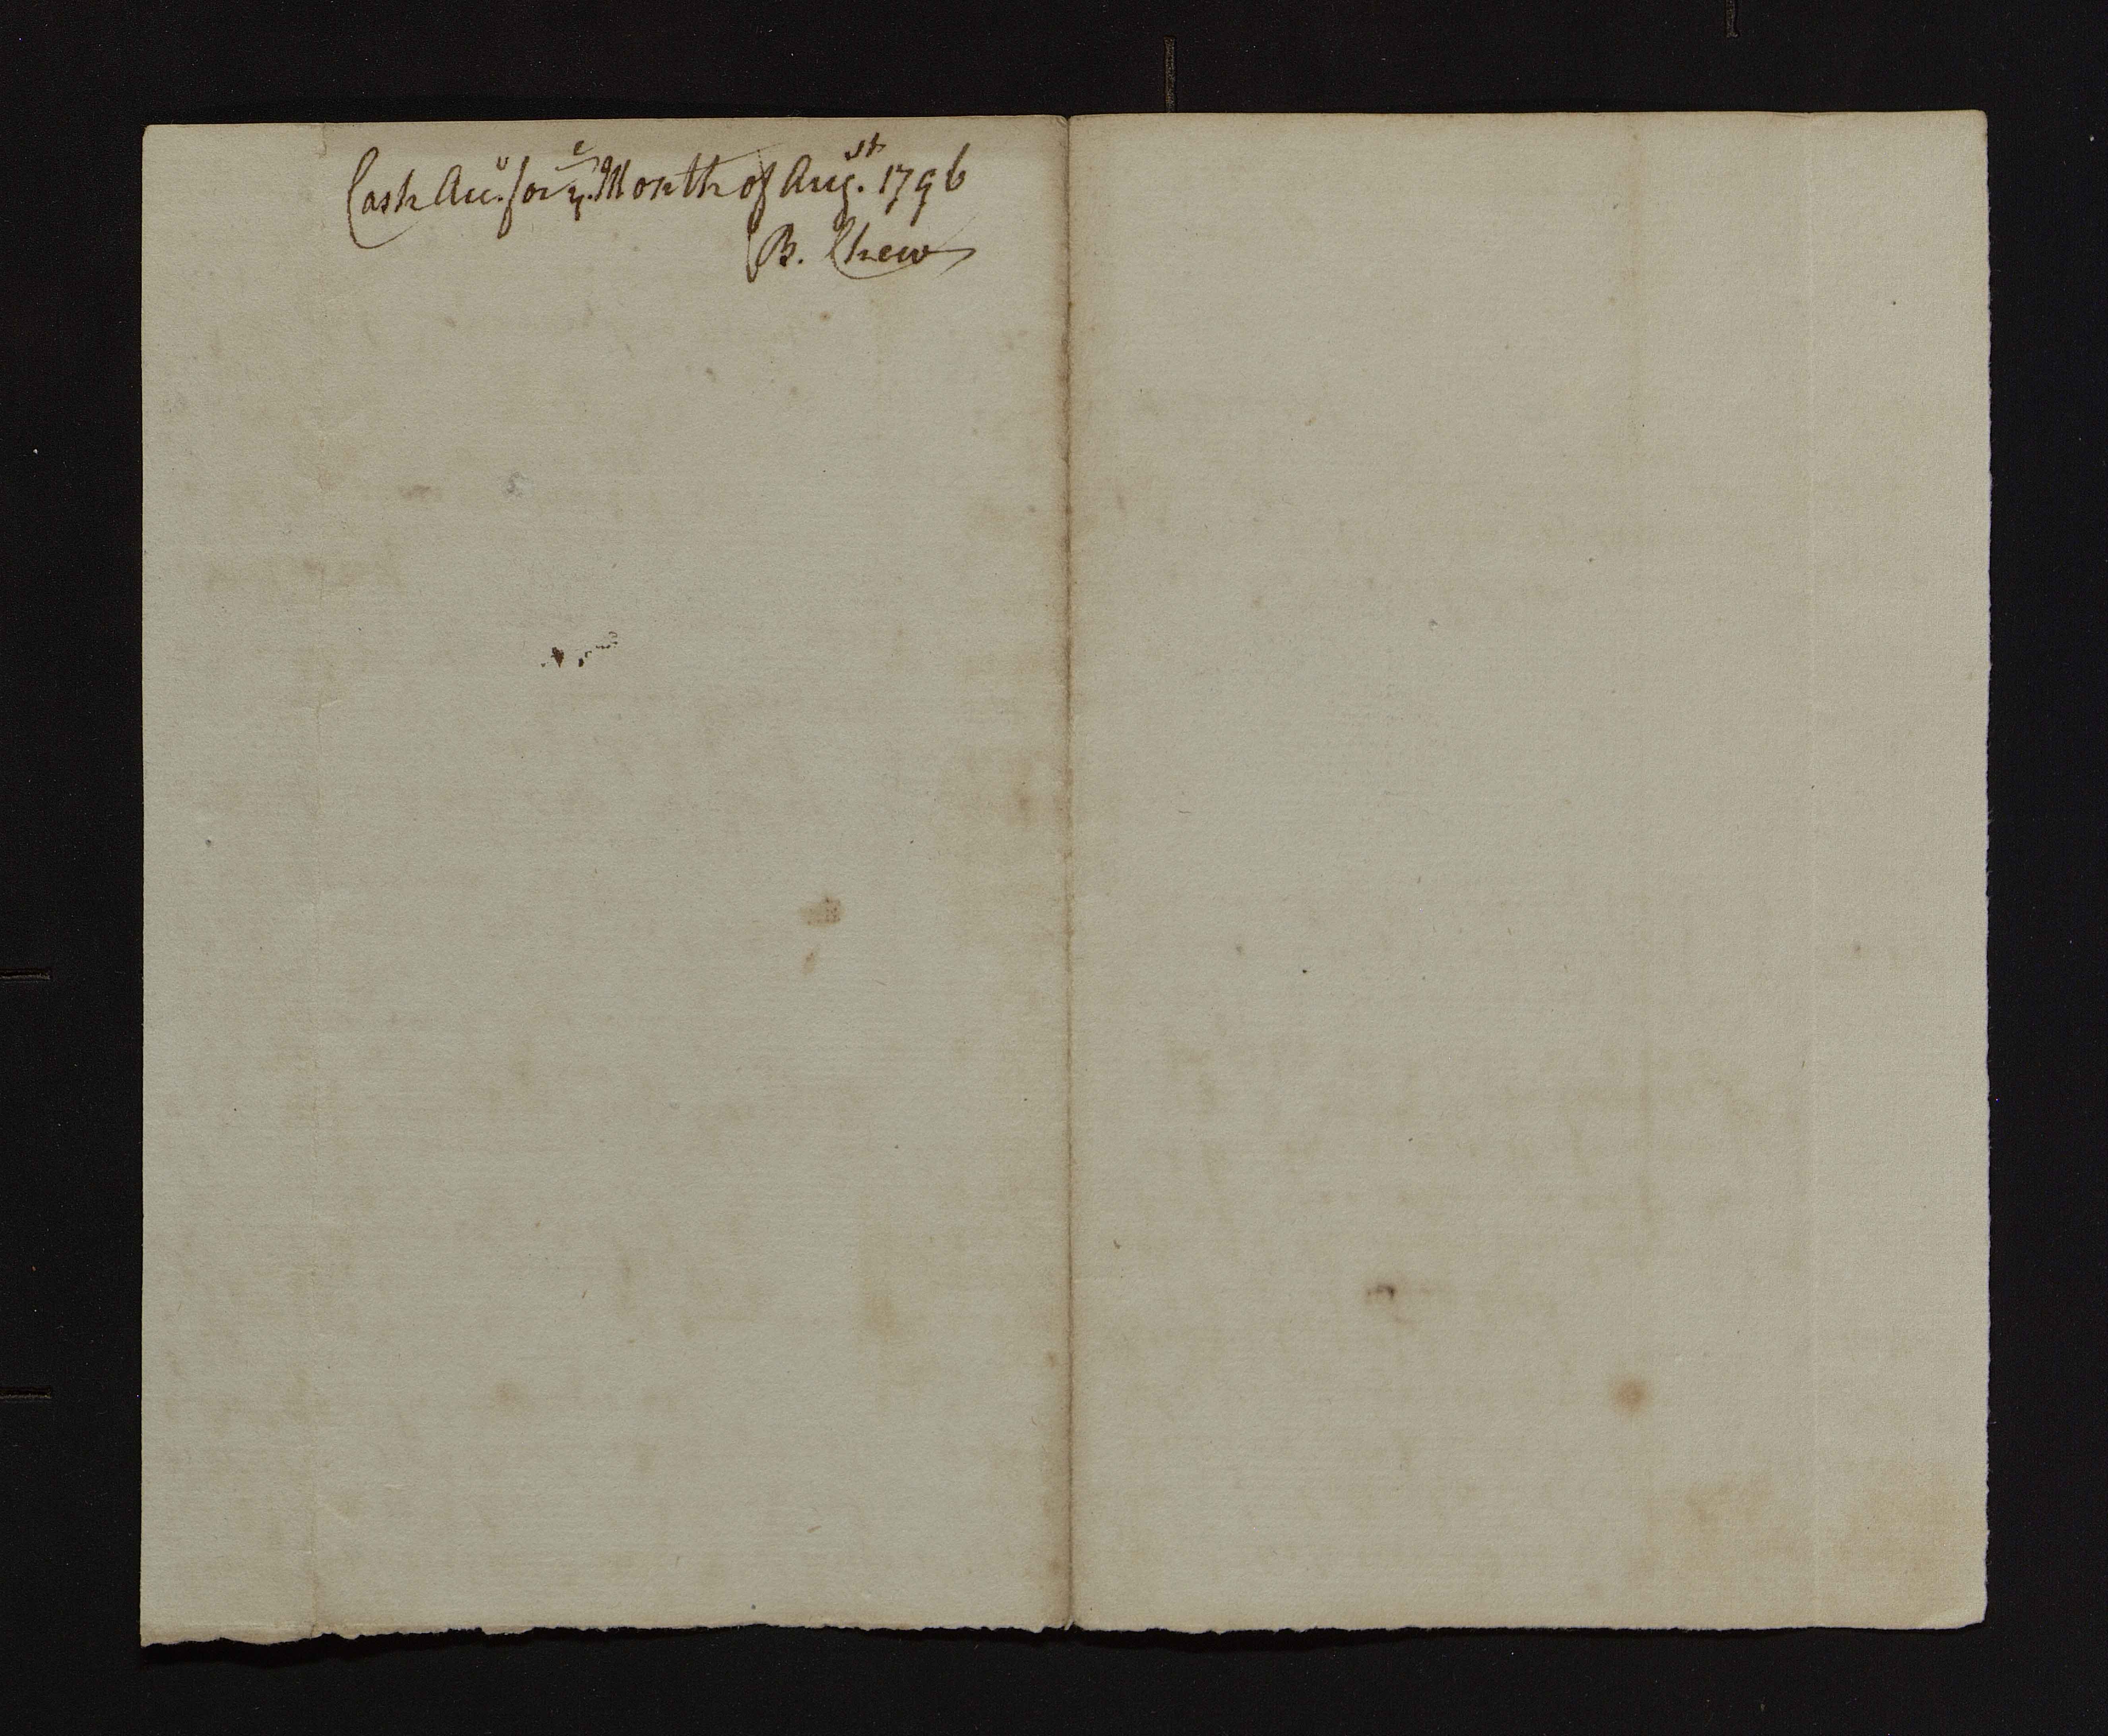 Cash Acc.t for y.e Month of Aug.st 1796
B. Chew